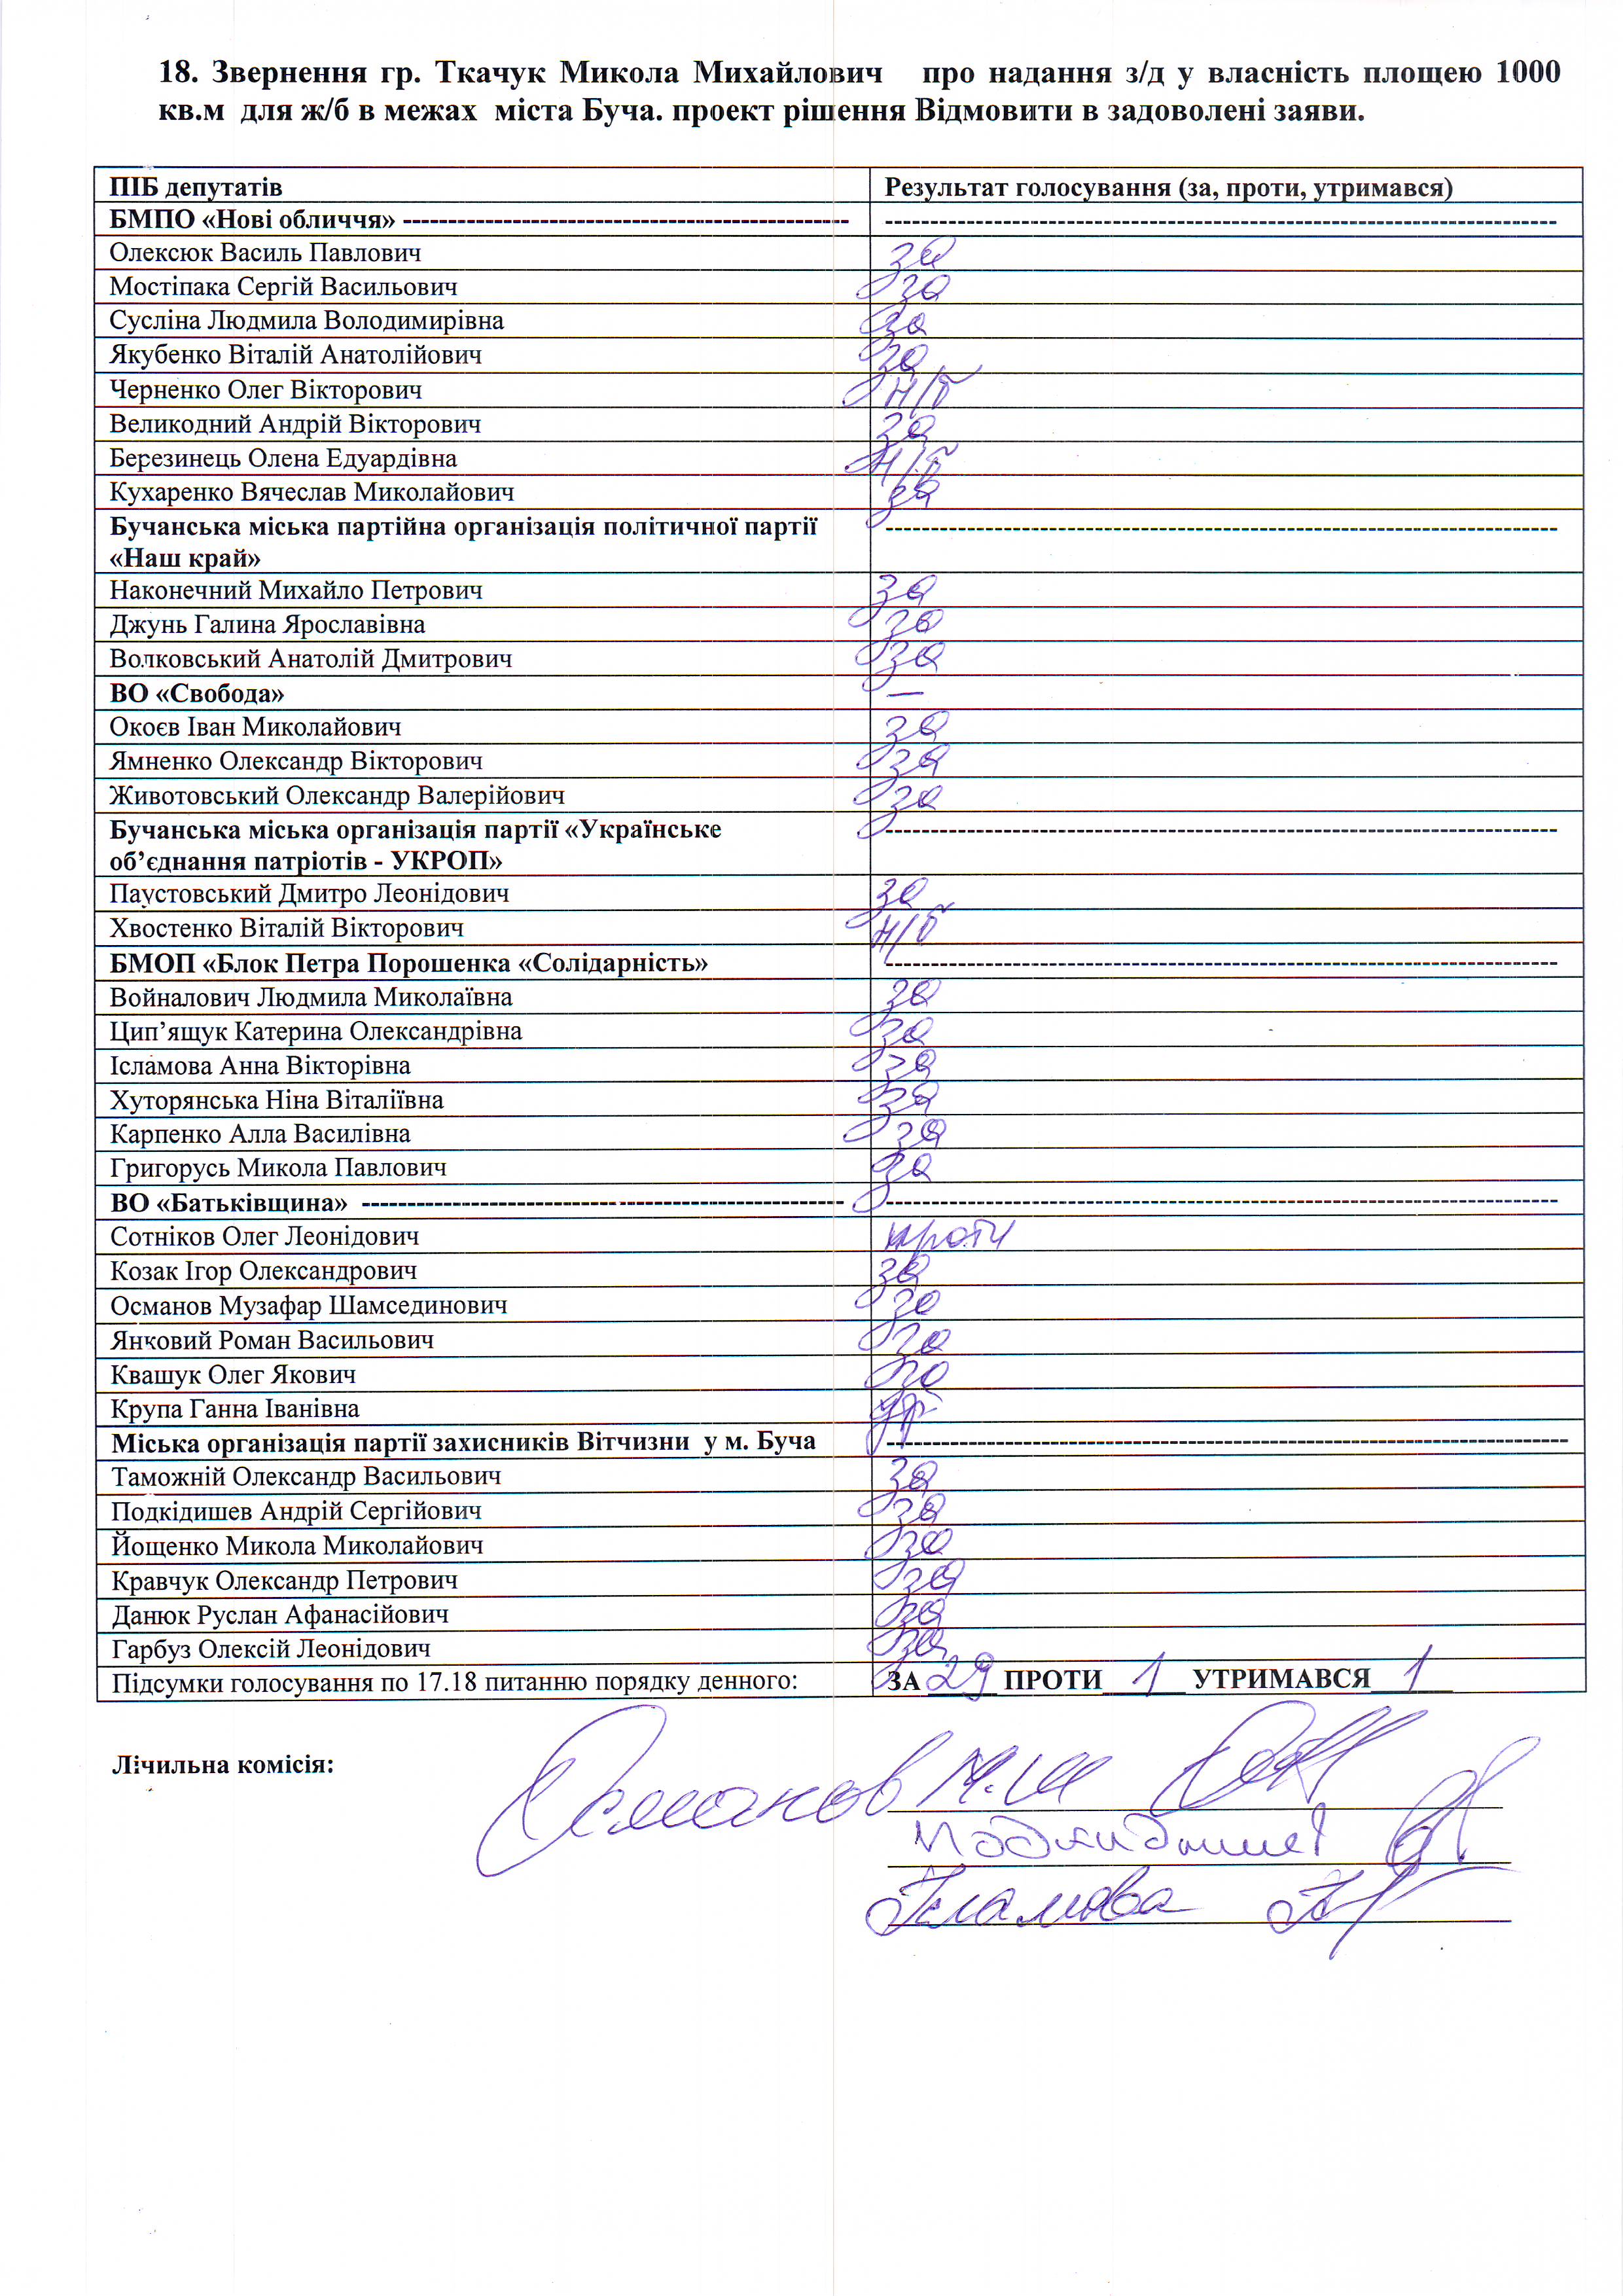 18. Звернення гр. Ткачук Микола Михайлович про надання з/д у власність площею 1000
кв.м для ж/б в межах міста Буча. проект рішення Відмовити в задоволені заяви.
ПІБ депутатів Результат голосування (за, проти, утримався)
БМПО «Нові обличчя» ---------- ----------
Олексюк Василь Павлович за
Мостіпака Сергій Васильович за
Сусліна Людмила Володимирівна за
Якубенко Віталій Анатолійович за
Черненко Олег Вікторович н/б
Великодний Андрій Вікторович за
Березинець Олена Едуардівна н/б
Кухаренко Вячеслав Миколайович за
Бучанська міська партійна організація політичної партії ----------
«Наш край»
Наконечний Михайло Петрович за
Джунь Галина Ярославівна за
Волковський Анатолій Дмитрович за
ВО «Свобода» —
Окоєв Іван Миколайович за
Ямненко Олександр Вікторович за
Животовський Олександр Валерійович за
Бучанська міська організація партії «Українське ----------
об’єднання патріотів - УКРОП»
Паустовський Дмитро Леонідович за
Хвостенко Віталій Вікторович н/б
БМОП «Блок Петра Порошенка «Солідарність» ----------
Войналович Людмила Миколаївна за
Цип’ящук Катерина Олександрівна за
Ісламова Анна Вікторівна за
Хуторянська Ніна Віталіївна за
Карпенко Алла Василівна за
Григорусь Микола Павлович за
ВО «Батьківщина» ---------- ----------
Сотніков Олег Леонідович проти
Козак Ігор Олександрович за
Османов Музафар Шамсединович за
Янковий Роман Васильович за
Квашук Олег Якович за
Крупа Ганна Іванівна утр
Міська організація партії захисників Вітчизни у м. Буча ----------
Таможній Олександр Васильович за
Подкідишев Андрій Сергійович за
Йощенко Микола Миколайович за
Кравчук Олександр Петрович за
Данюк Руслан Афанасійович за
Гарбуз Олексій Леонідович за
Підсумки голосування по 17.18 питанню порядку денного: ЗА 29 ПРОТИ 1 УТРИМАВСЯ 1
Лічильна комісія: Османов М.Ш
Подкидишев
Ісламова